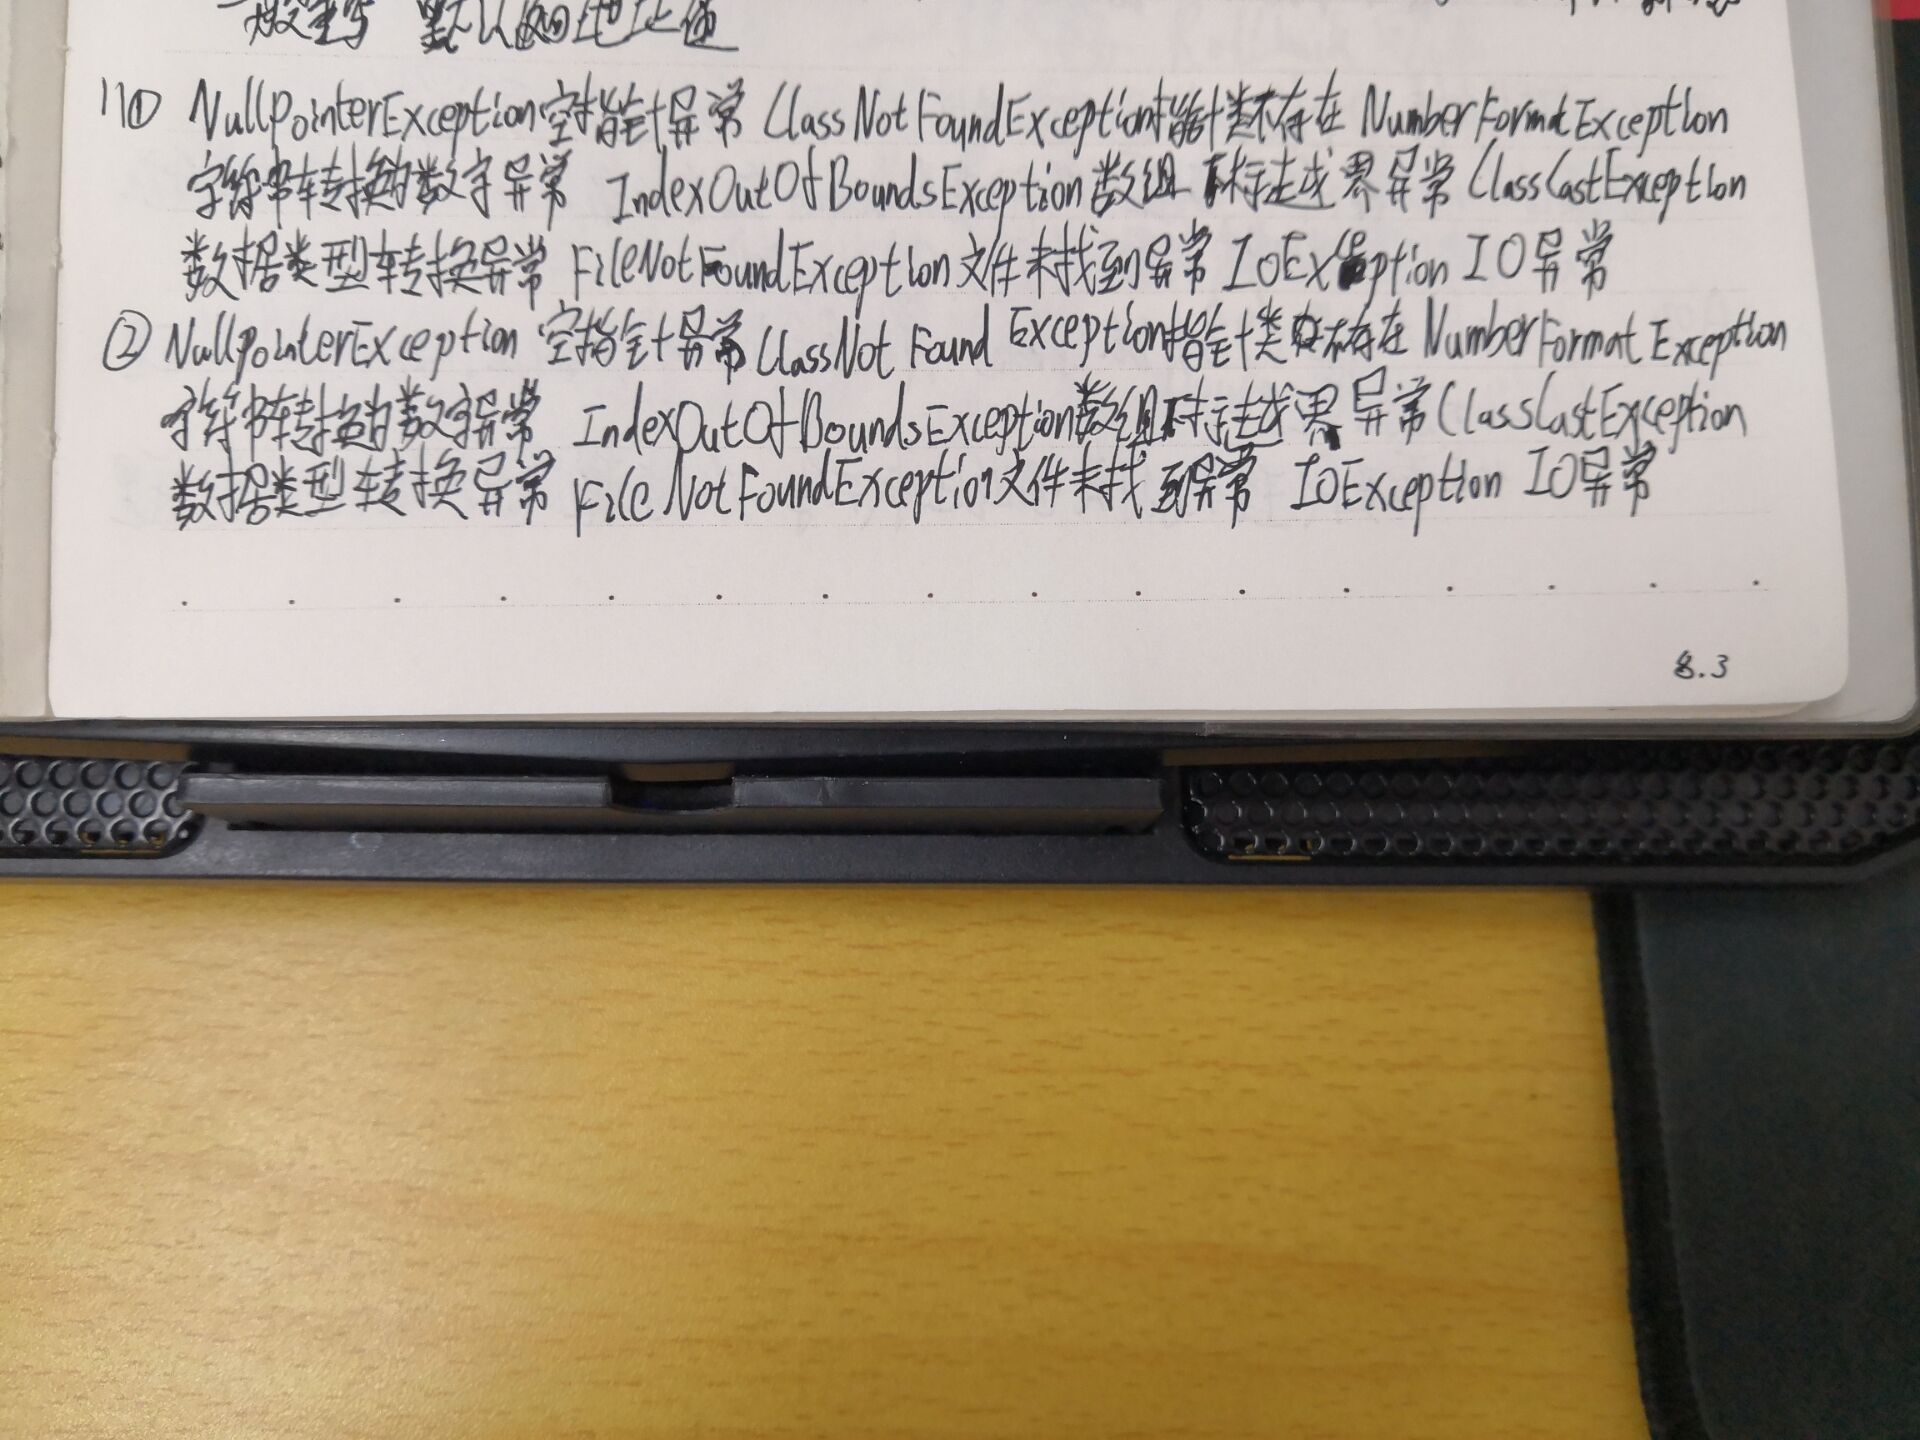 一般重写 默认的地址值
11① NullPointerException空指针异常 ClassNotFoundException指针类不存在 NumberFormatException
字符串转换为数字异常 IndexOutOfBoundsException数组下标越界异常 ClassCastException
数据类型转换异常 FileNotFoundException文件未找到异常 IOException IO异常
② NullPointerException 空指针异常 ClassNot Found Exception指针类不存在 NumberFormat Exception
字符串转换为数字异常 IndexOutOfBoundsException数组下标越界异常 ClassCastException
数据类型转换异常 File NotFoundException文件未找到异常 IOException IO异常
8.3